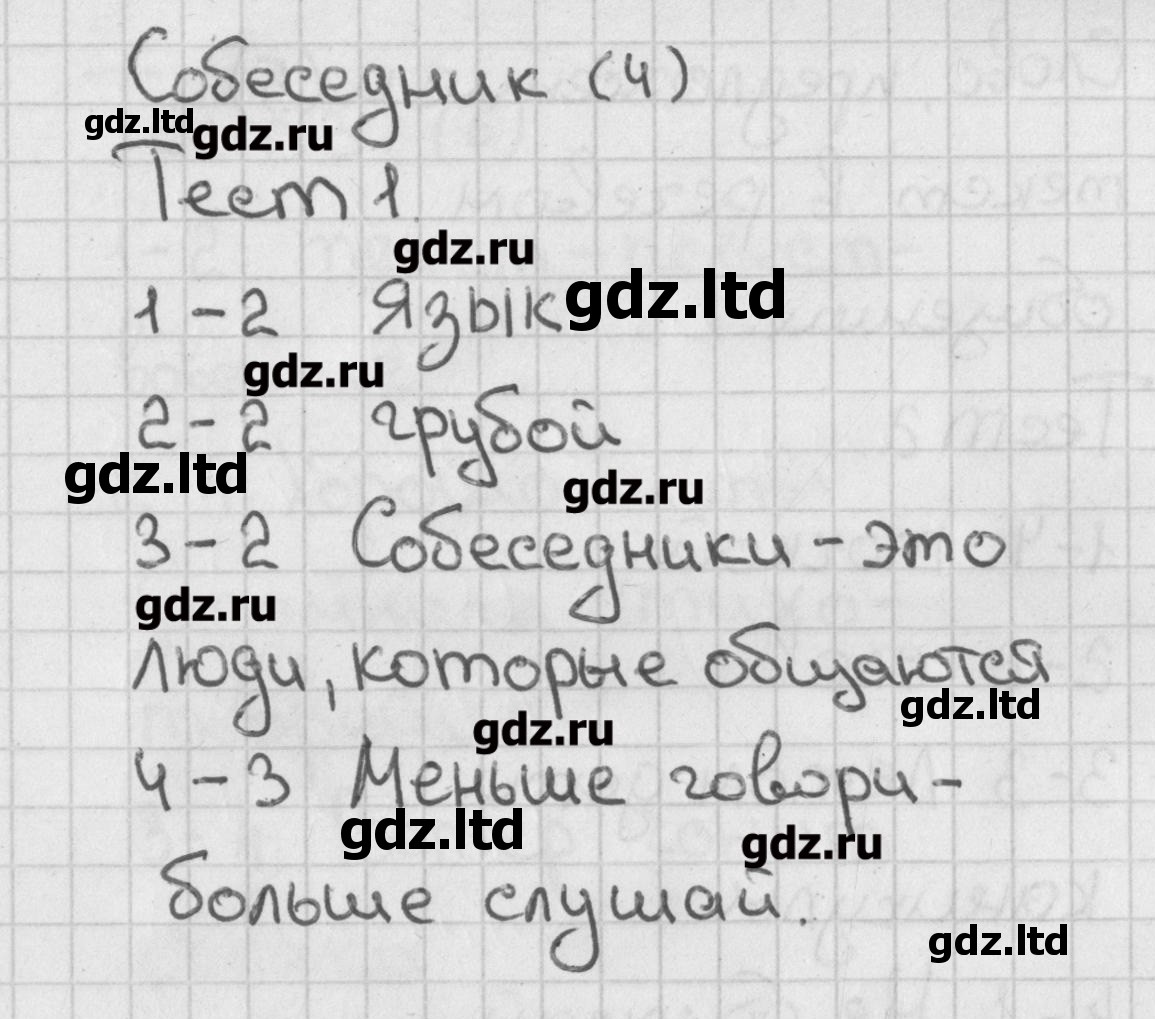 Собеседник (4)
gdz.ltd gdz.ru
Тест 1.
gdz.ru
1 - 2 Язык gdz.ltd
gdz.ru
2 - 2 грубой
gdz.ltd gdz.ru
3 - 2 Собеседники - это
gdz.ru
люди, которые общаются
gdz.ru gdz.ltd
4 - 3 Меньше говори -
gdz.ltd gdz.ru
больше слушай.
gdz.ltd